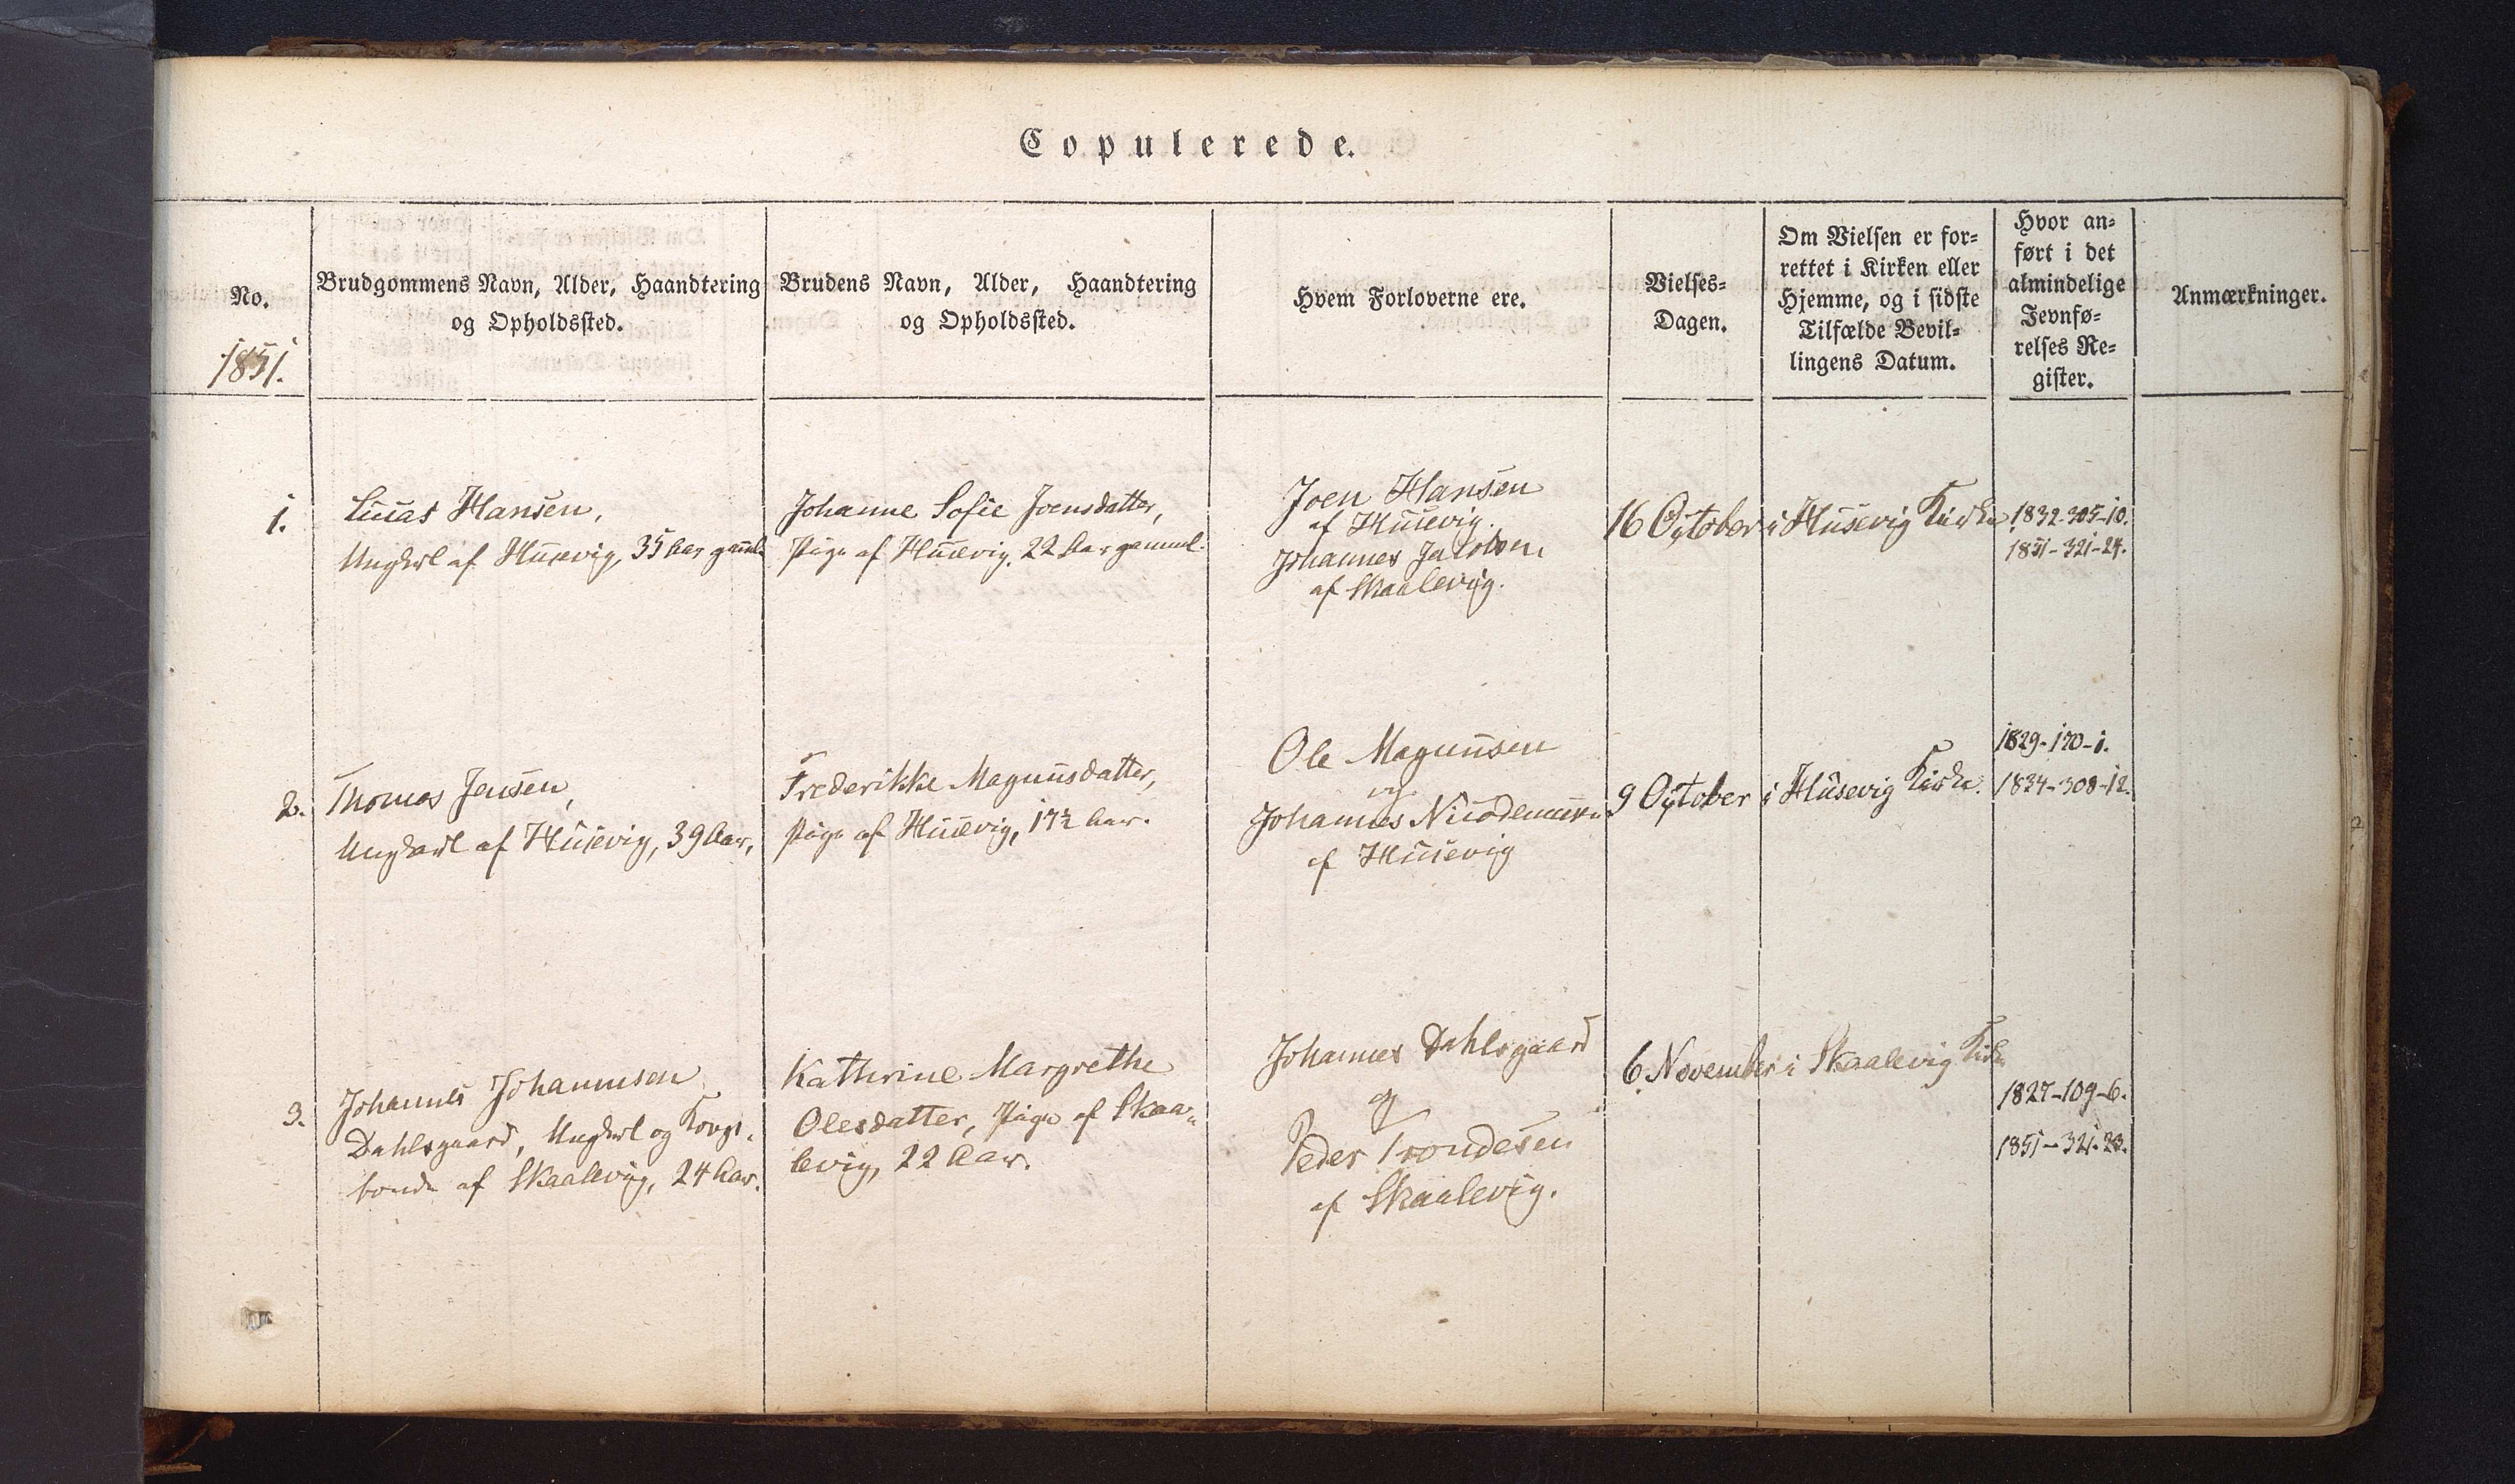 Copulerede.
No.
1851.
Brudgommens Navn, Alder, Haandtering
og Opholdssted.
Brudens Navn, Alder, Haandtering
og Opholdssted.
Hvem Forloverne ere.
Vielses-
Dagen.
Om Vielsen er for-
rettet i Kirken eller
Hjemme, og i sidste
Tilfælde Bevil-
lingens Datum.
Hvor an-
ført i det
almindelige
Jevnfø-
relses Re-
gister.
Anmærkninger.
1.
Lucas Hansen,
Ungkarl af Husevig, 35 Aar gaml.
Johanne Sofie Joensdatter,
Pige af Husevig, 22 Aar gammel.
Joen Hansen
af Husevig.
Johannes Jacobsen
af Skaalevig.
16 October
i Husevig Kirke
1832-305-10.
1851-321-24.
2.
Thomas Jensen,
Ungkarl af Husevig, 39 Aar,
Frederikke Magnusdatter,
Pige af Husevig, 17½ Aar.
Ole Magnussen
og
Johannes Nicodemussen
af Husevig
9 October
i Husevig Kirke.
1829-170-1.
1834-308-12.
3.
Johannes Johannesen
Dahlsgaard, Ungkarl og Kongs-
bonde af Skaalevig, 24 Aar.
Kathrine Margrethe
Olesdatter, Pige af Skaa-
levig, 22 Aar.
Johannes Dahlsgaard
og
Peder Trondesen
af Skaalevig.
6. November
i Skaalevig Kirke
1827-109-6.
1851-321-23.